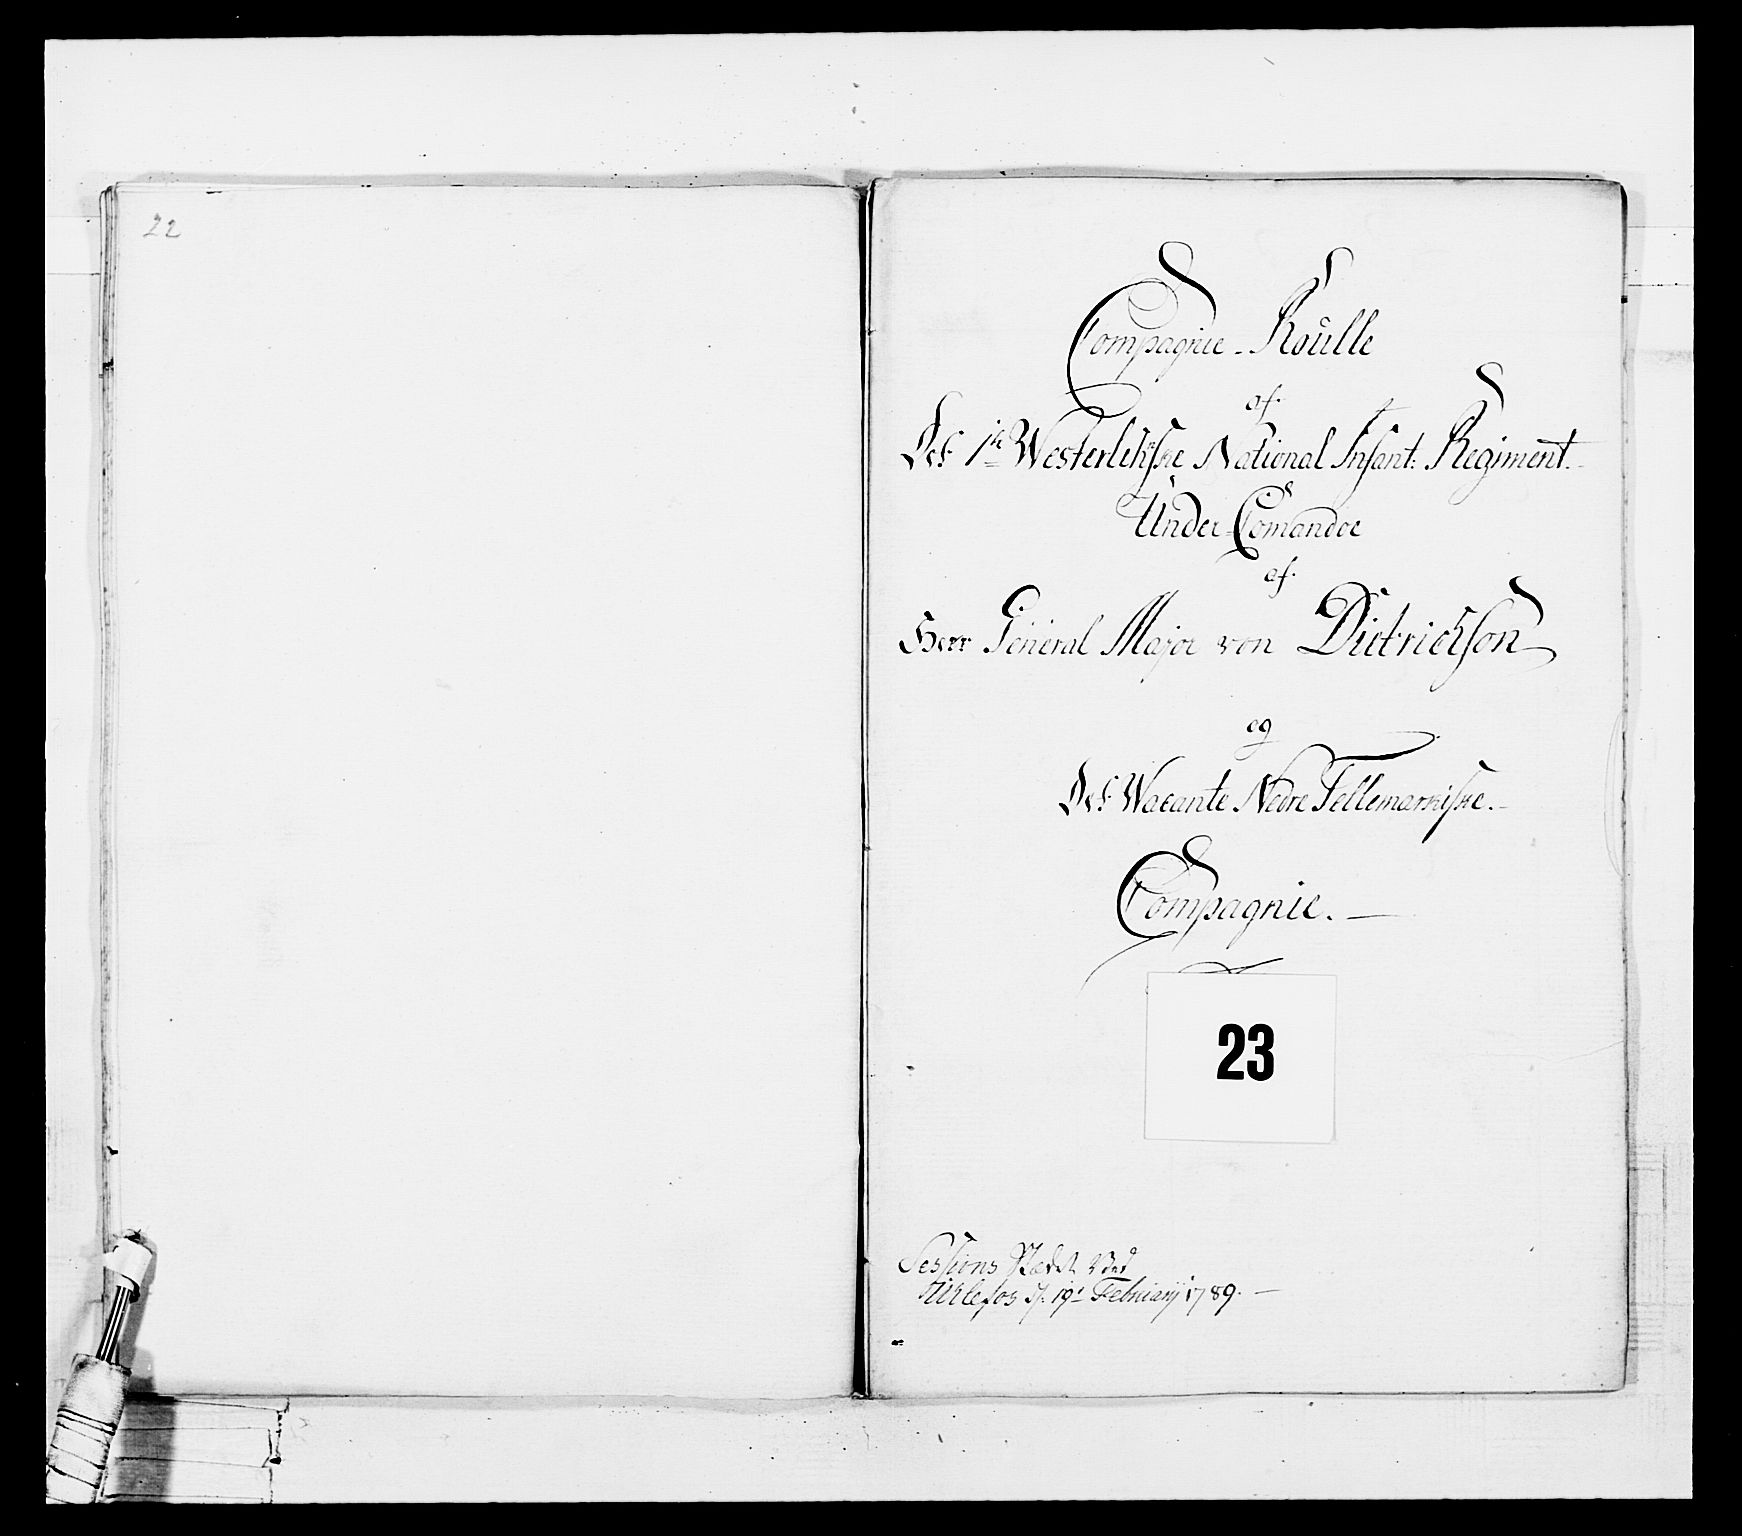 22
Compagnie - Roülle
af
Det 1te Westerlehske National Infant: Regiment.
Under Comandoe
af
Herr General Major von Dietrichson
og
Det Vacante Nedre Tellemarkiske.
Compagnie.
23
Sessions Stædet Ved
Ulefos d. 19de Februarij 1789.